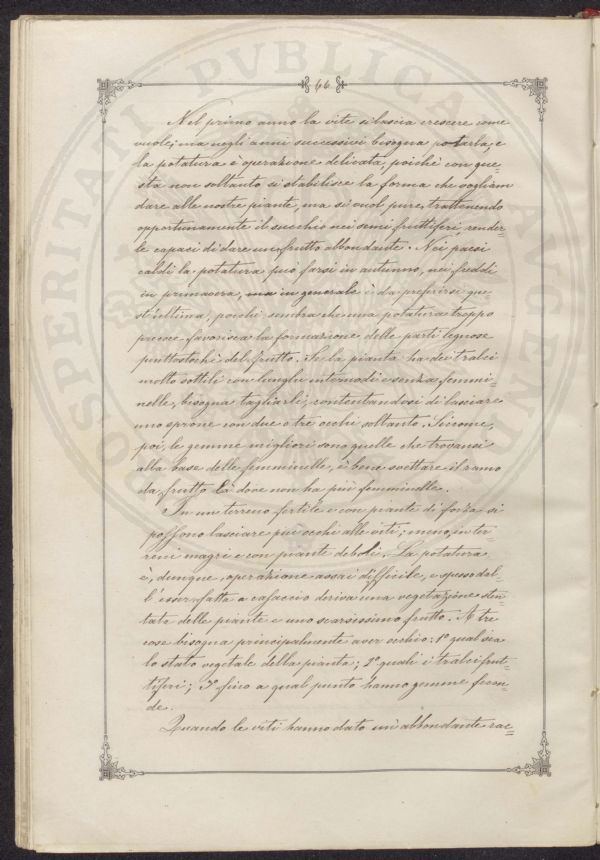 66
Nel primo anno la vite si lascia crescere come
vuole; ma negli anni successivi bisogna potarla, e
la potatura è operazione delicata, poichè con que=
sta non soltanto si stabilisce la forma che vogliam
dare alle nostre piante, ma si vuol pure, trattenendo
opportunamente il succhio nei semi fruttiferi, render=
le capaci di dare un frutto abbondante. Nei paesi
caldi la potatura può farsi in autunno, nei freddi
in primavera, ma in generale è da preferirsi que=
st'ultima, poichè sembra che una potatura troppo
precoce favorisca la formazione delle parti legnose
piuttostochè del frutto. Se la pianta ha dei tralci
molto sottili con lunghi internodi e senza femmi=
nelle, bisogna tagliarli, contentandosi di lasciare
uno sprone con due o tre occhi soltanto. Siccome,
poi, le gemme migliori sono quelle che trovansi
alla base delle femminelle, è bene svettare il ramo
da frutto là dove non ha più femminelle.
In un terreno fertile e con piante di forza si
possono lasciare più occhi alle viti; meno, in ter=
reni magri e con piante deboli. La potatura
è, dunque, operazione assai difficile, e spesso dal=
l'esser fatta a casaccio deriva una vegetazione sten=
tata delle piante e uno scarsissimo frutto. A tre
cose bisogna principalmente aver occhio: 1° qual sia
lo stato vegetale della pianta; 2° quali i tralci frut=
tiferi; 3° fino a qual punto hanno gemme fecon=
de.
Quando le viti hanno dato un'abbondante rac=
PROSPERITATI PVBLICAE AVGENDAE